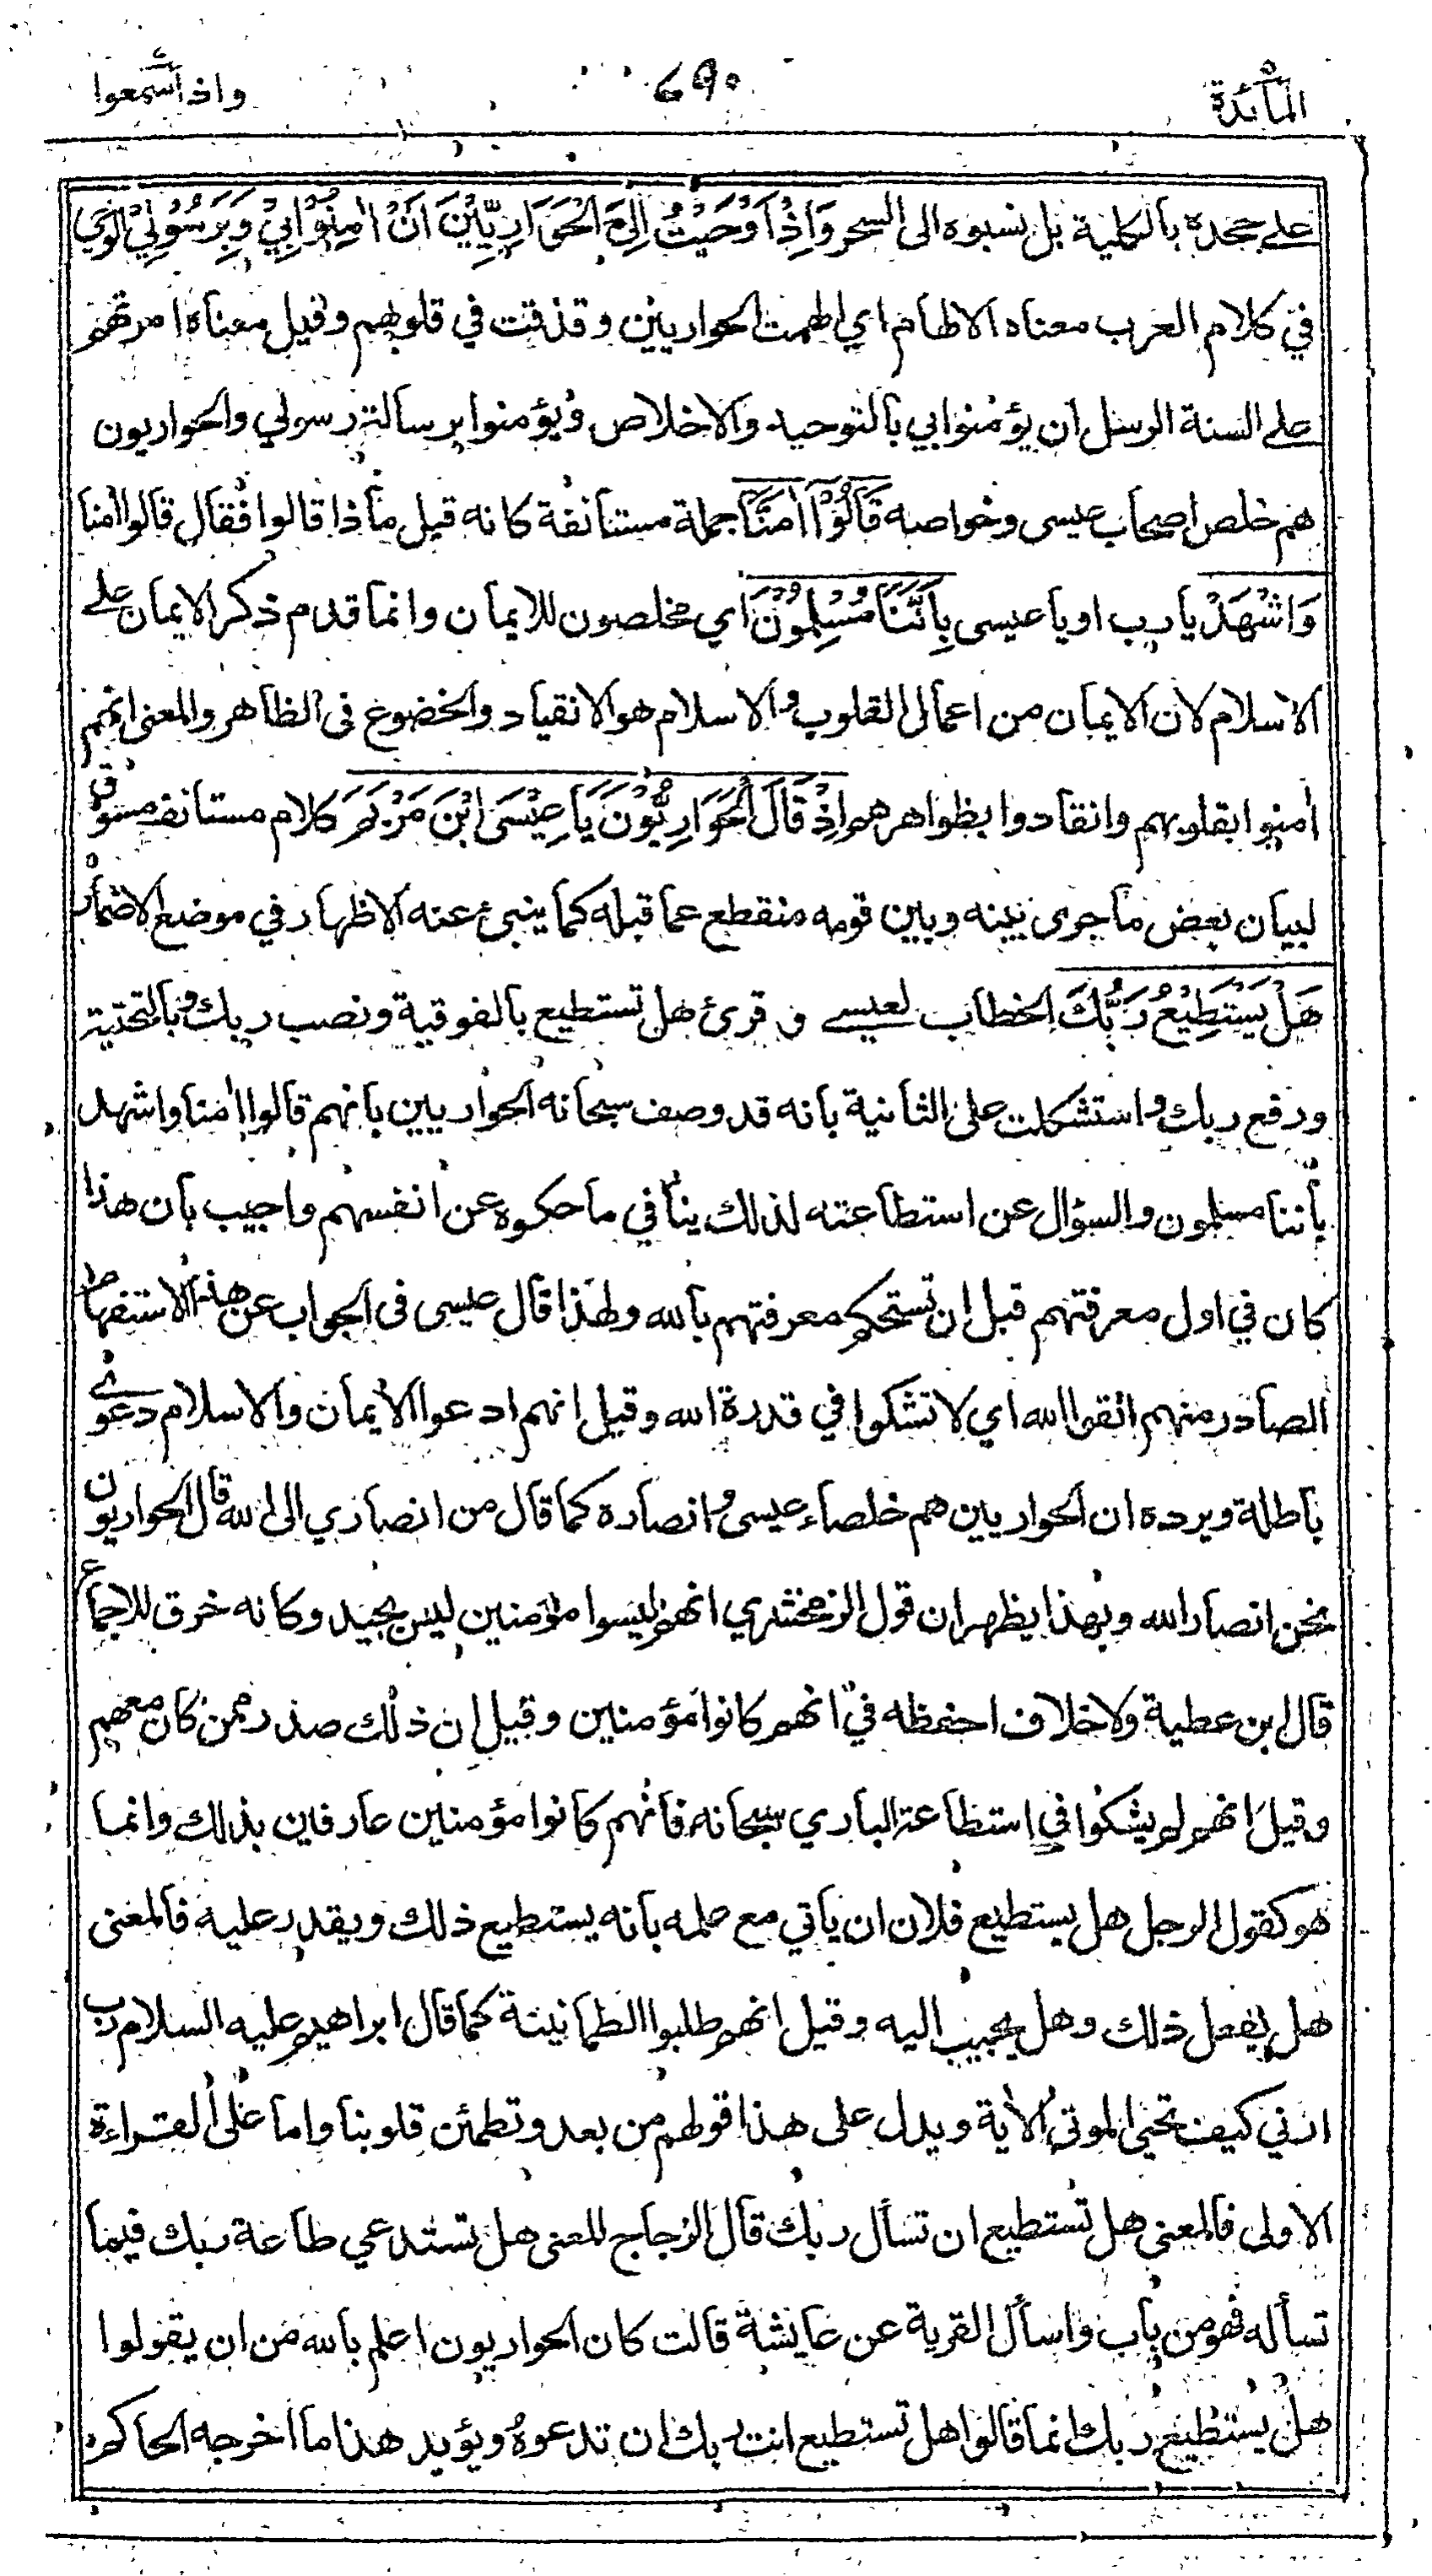 المائدة
٦٩٠
واذا سمعوا
على جحده بالكلية بل نسبوه الى السحر وَاِذْ اَوْحَيْتُ اِلَى الْحَوَارِيّٖيْنَ اَنْ اٰمِنُوْا بِيْ وَبِرَسُوْلِيْ الوحي
في كلام العرب معناه الالهام اي الهمت الحواريين وقذفت في قلوبهم وقيل معناه امرتهم
على السنة الرسل ان يؤمنوا بي بالتوحيد والاخلاص ويؤمنوا برسالة رسولي والحواريون
هم خلص اصحاب عيسى وخواصه قَالُوْٓا اٰمَنَّا جملة مستانفة كانه قيل ماذا قالوا فقال قالوا اٰمنا
وَاشْهَدْ يا رب او يا عيسى بِاَنَّنَا مُسْلِمُوْنَ اي مخلصون للايمان وانما قدم ذكر الايمان على
الاسلام لان الايمان من اعمال القلوب والاسلام هو الانقياد والخضوع فى الظاهر والمعنى انهم
اٰمنوا بقلوبهم وانقادوا بظواهرهم اِذْ قَالَ الْحَوَارِيُّوْنَ يَا عِيْسَى ابْنَ مَرْيَمَ كلام مستانف مسوق
لبيان بعض ما جرى بينه وبين قومه منقطع عما قبله كما ينبئ عنه الاظهار في موضع الاضمار
هَلْ يَسْتَطِيْعُ رَبُّكَ الخطاب لعيسى و قرئ هل تستطيع بالفوقية ونصب ربك وبالتحتية
ورفع ربك واستشكلت على الثانية بانه قد وصف سبحانه الحواريين بانهم قالوا اٰمنا واشهد
باننا مسلمون والسؤال عن استطاعته لذلك ينافي ما حكوه عن انفسهم واجيب بان هذا
كان في اول معرفتهم قبل ان تستحكم معرفتهم بالله ولهذا قال عيسى فى الجواب عن هذا الاستفهام
الصادر منهم اتقوا الله اي لا تشكوا في قدرة الله وقيل انهم ادعوا الايمان والاسلام دعوى
باطلة ويرده ان الحواريين هم خلصاء عيسى وانصاره كما قال من انصاري الى الله قال الحواريون
نحن انصار الله وبهذا يظهر ان قول الزمخشري انهم ليسوا مؤمنين ليس بجيد وكانه خرق للاجماع
قال ابن عطية ولا خلاف احفظه في انهم كانوا مؤمنين وقيل ان ذلك صدر ممن كان معهم
وقيل انهم لم يشكوا في استطاعة الباري سبحانه فانهم كانوا مؤمنين عارفين بذلك وانما
هو كقول الرجل هل يستطيع فلان ان ياتي مع علمه بانه يستطيع ذلك ويقدر عليه فالمعنى
هل يفعل ذلك وهل يجيب اليه وقيل انهم طلبوا الطمانينة كما قال ابراهيم عليه السلام رب
ارني كيف تحيى الموتى الاٰية ويدل على هذا قولهم من بعد وتطمئن قلوبنا واما على القراءة
الاولى فالمعنى هل تستطيع ان تسأل ربك قال الزجاج المعنى هل تستدعي طاعة ربك فيما
تسأله فهو من باب واسأل القرية عن عايشة قالت كان الحواريون اعلم بالله من ان يقولوا
هل يستطيع ربك انما قالوا هل تستطيع انت ربك ان تدعوه ويؤيد هذا ما اخرجه الحاكم